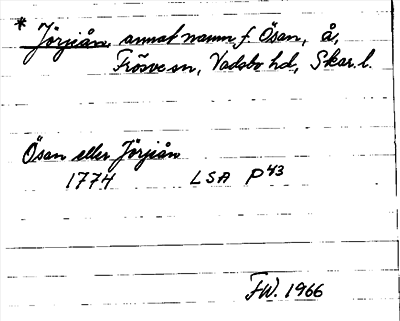 * Jörjeån, annat namn f. Ösan, å,
Frösve sn, Vadsbo hd, Skar. l.
Ösan eller Jörjeån
1774 LSA P43
FW. 1966